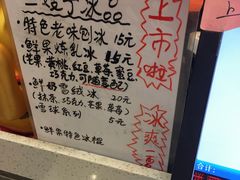 特色老味刨冰 15元
鲜果炼乳冰 15元
(芒果.黄桃.红豆.草莓.蜜豆
巧克力.可随意配)
鲜奶雪绒冰 20元
(抹茶.巧克力.芒果.草莓)
雪球系列 5元
鲜果特色冰棍
上市啦
冰爽一夏
合计: